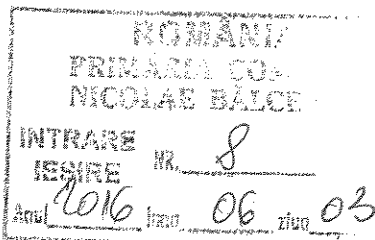 ROMÂNI
PRIMĂRIA CO
NICOLAE BĂLCE
INTRARE
IEȘIRE NR. 8
Anul 2016 luna 06 ziua 03